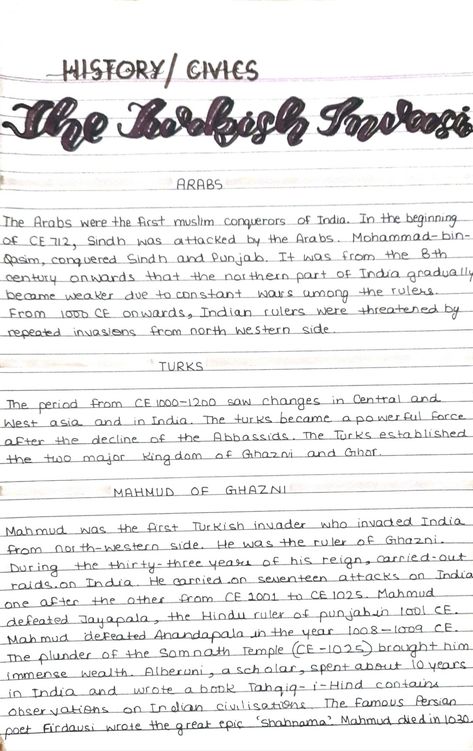 HISTORY/ CIVICS
The Turkish Invasi
ARABS
The Arabs were the first muslim conquerors of India. In the beginning
of CE 712, Sindh was attacked by the Arabs. Mohammad-bin-
Qasim, conquered Sindh and Punjab. It was from the 8th
century onwards that the northern part of India gradually
became weaker due to constant wars among the rulers.
From 1000 CE onwards, Indian rulers were threatened by
repeated invasions from north western side.
TURKS
The period from CE 1000-1200 saw changes in Central and
West asia and in India. The turks became a powerful force
after the decline of the Abbassids. The Turks established
the two major kingdom of Ghazni and Ghor.
MAHMUD OF GHAZNI
Mahmud was the first Turkish invader who invaded India
from north-western side. He was the ruler of Ghazni.
During the thirty-three years of his reign, carried-out
raids on India. He carried on seventeen attacks on India
one after the other from CE 1001 to CE 1025. Mahmud
defeated Jayapala, the Hindu ruler of punjab in 1001 CE.
Mahmud defeated Anandapala in the year 1008-1009 CE.
The plunder of the Somnath Temple (CE-1025) brought him
immense wealth. Alberuni, a scholar, spent about 10 years
in India and wrote a book Tahqiq-i-Hind contains
observations on Indian civilisations. The famous Persian
poet Firdausi wrote the great epic 'Shahnama'. Mahmud died in 1030.